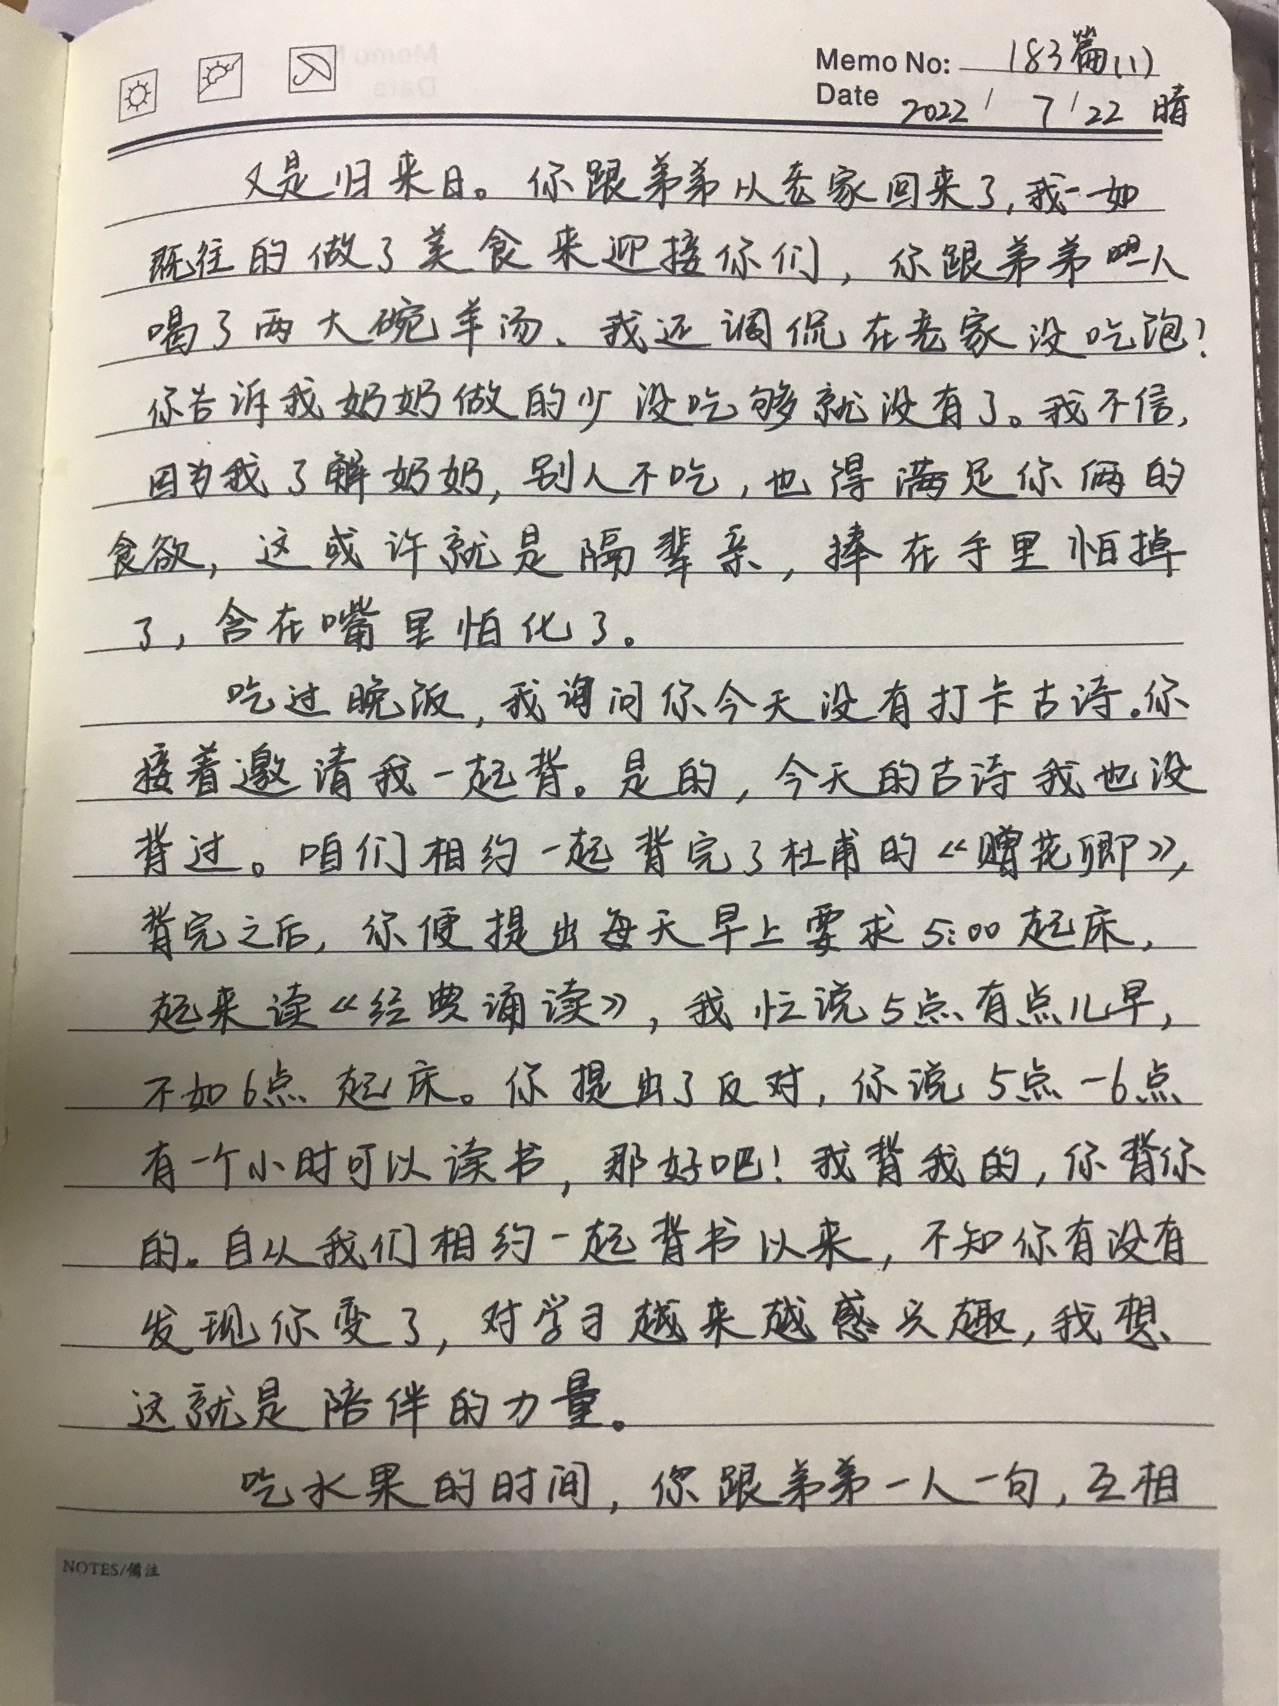 Memo No: 183篇(1)
Date 2022/7/22 晴
又是归来日。你跟弟弟从老家回来了,我一如
既往的做了美食来迎接你们,你跟弟弟 人
喝了两大碗羊汤、我还调侃在老家没吃饱?
你告诉我奶奶做的少没吃够就没有了。我不信,
因为我了解奶奶,别人不吃,也得满足你俩的
食欲,这或许就是隔辈亲,捧在手里怕掉
了,含在嘴里怕化了。
吃过晚饭,我询问你今天没有打卡古诗。你
接着邀请我一起背。是的,今天的古诗我也没
背过。咱们相约一起背完了杜甫的《赠花卿》,
背完之后,你便提出每天早上要求5:00起床,
起来读《经典诵读》,我忙说5点有点儿早,
不如6点起床。你提出了反对,你说5点-6点
有一个小时可以读书,那好吧!我背我的,你背你
的。自从我们相约一起背书以来,不知你有没有
发现你变了,对学习越来越感兴趣,我想
这就是陪伴的力量。
吃水果的时间,你跟弟弟一人一句,互相
NOTES/備注